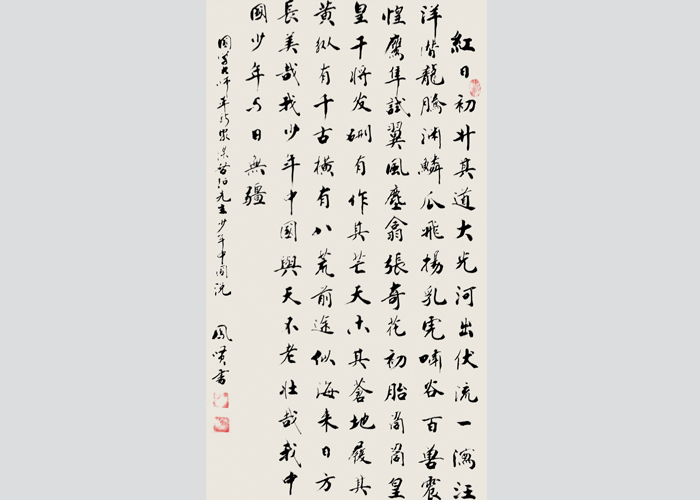 紅日初升其道大光河出伏流一瀉汪
洋潛龍騰淵鱗爪飛揚乳虎嘯谷百獸震
惶鷹隼試翼風塵翕張奇花初胎矞矞皇
皇干將发硎有作其芒天戴其蒼地履其
黄纵有千古橫有八荒前途似海来日方
長美哉我少年中國與天不老壯哉我中
國少年与日無疆
國学大师先生少年中國说
鳳賢書